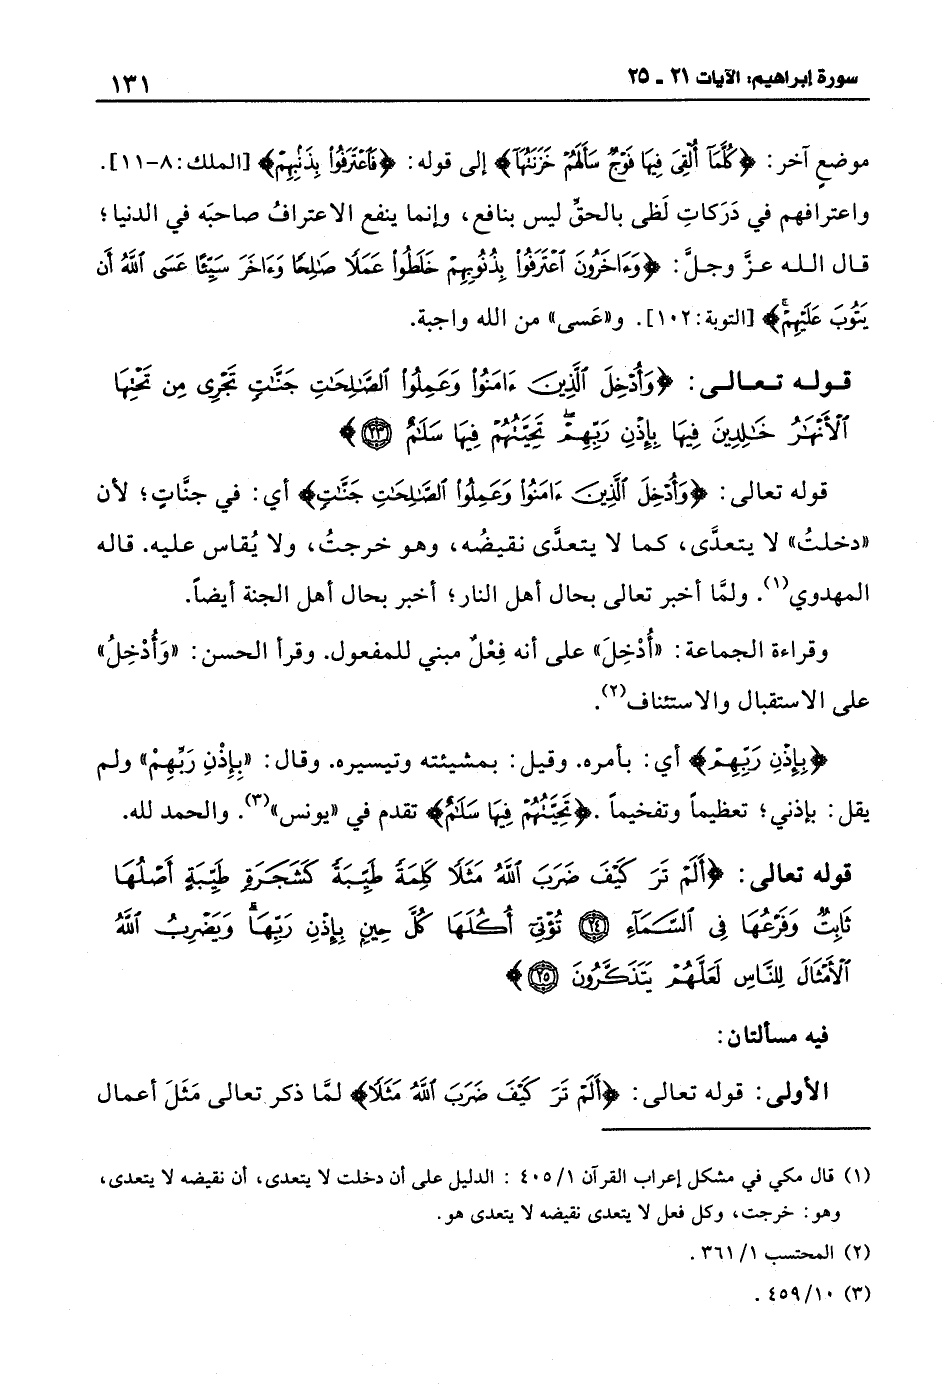 سورة إبراهيم: الآيات ٢١ - ٢٥ ١٣١
موضع آخر: ﴿كُلَّمَآ أُلْقِىَ فِيهَا فَوْجٌ سَأَلَهُمْ خَزَنَتُهَآ﴾ إلى قوله: ﴿فَٱعْتَرَفُوا۟ بِذَنۢبِهِمْ﴾ [الملك: ٨-١١].
واعترافهم في دَرَكاتِ لَظى بالحقِّ ليس بنافع، وإنما ينفع الاعترافُ صاحبَه في الدنيا؛
قال الله عزَّ وجلَّ: ﴿وَءَاخَرُونَ ٱعْتَرَفُوا۟ بِذُنُوبِهِمْ خَلَطُوا۟ عَمَلًا صَٰلِحًا وَءَاخَرَ سَيِّئًا عَسَى ٱللَّهُ أَن
يَتُوبَ عَلَيْهِمْ﴾ [التوبة: ١٠٢]. و«عَسى» من الله واجبة.
قوله تعالى: ﴿وَأُدْخِلَ ٱلَّذِينَ ءَامَنُوا۟ وَعَمِلُوا۟ ٱلصَّٰلِحَٰتِ جَنَّٰتٍ تَجْرِى مِن تَحْتِهَا
ٱلْأَنْهَٰرُ خَٰلِدِينَ فِيهَا بِإِذْنِ رَبِّهِمْ ۖ تَحِيَّتُهُمْ فِيهَا سَلَٰمٌ ٢٣﴾
قوله تعالى: ﴿وَأُدْخِلَ ٱلَّذِينَ ءَامَنُوا۟ وَعَمِلُوا۟ ٱلصَّٰلِحَٰتِ جَنَّٰتٍ﴾ أي: في جنَّاتٍ؛ لأن
«دخلتُ» لا يتعدَّى، كما لا يتعدَّى نقيضُه، وهو خرجتُ، ولا يُقاس عليه. قاله
المهدوي(١). ولمَّا أخبر تعالى بحال أهل النار؛ أخبر بحال أهل الجنة أيضاً.
وقراءة الجماعة: «أُدْخِلَ» على أنه فِعْلٌ مبني للمفعول. وقرأ الحسن: «وَأُدْخِلُ»
على الاستقبال والاستئناف(٢).
﴿بِإِذْنِ رَبِّهِمْ﴾ أي: بأمره. وقيل: بمشيئته وتيسيره. وقال: «بِإِذْنِ رَبِّهِمْ» ولم
يقل: بإذني؛ تعظيماً وتفخيماً. ﴿تَحِيَّتُهُمْ فِيهَا سَلَٰمٌ﴾ تقدم في «يونس»(٣). والحمد لله.
قوله تعالى: ﴿أَلَمْ تَرَ كَيْفَ ضَرَبَ ٱللَّهُ مَثَلًا كَلِمَةً طَيِّبَةً كَشَجَرَةٍ طَيِّبَةٍ أَصْلُهَا
ثَابِتٌ وَفَرْعُهَا فِى ٱلسَّمَآءِ ٢٤ تُؤْتِىٓ أُكُلَهَا كُلَّ حِينٍۭ بِإِذْنِ رَبِّهَا ۗ وَيَضْرِبُ ٱللَّهُ
ٱلْأَمْثَالَ لِلنَّاسِ لَعَلَّهُمْ يَتَذَكَّرُونَ ٢٥﴾
فيه مسألتان:
الأولى: قوله تعالى: ﴿أَلَمْ تَرَ كَيْفَ ضَرَبَ ٱللَّهُ مَثَلًا﴾ لمَّا ذكر تعالى مَثَلَ أعمال
(١) قال مكي في مشكل إعراب القرآن ١/ ٤٠٥ : الدليل على أن دخلت لا يتعدى، أن نقيضه لا يتعدى،
وهو: خرجت، وكل فعل لا يتعدى نقيضه لا يتعدى هو.
(٢) المحتسب ١/ ٣٦١ .
(٣) ١٠/ ٤٥٩ .